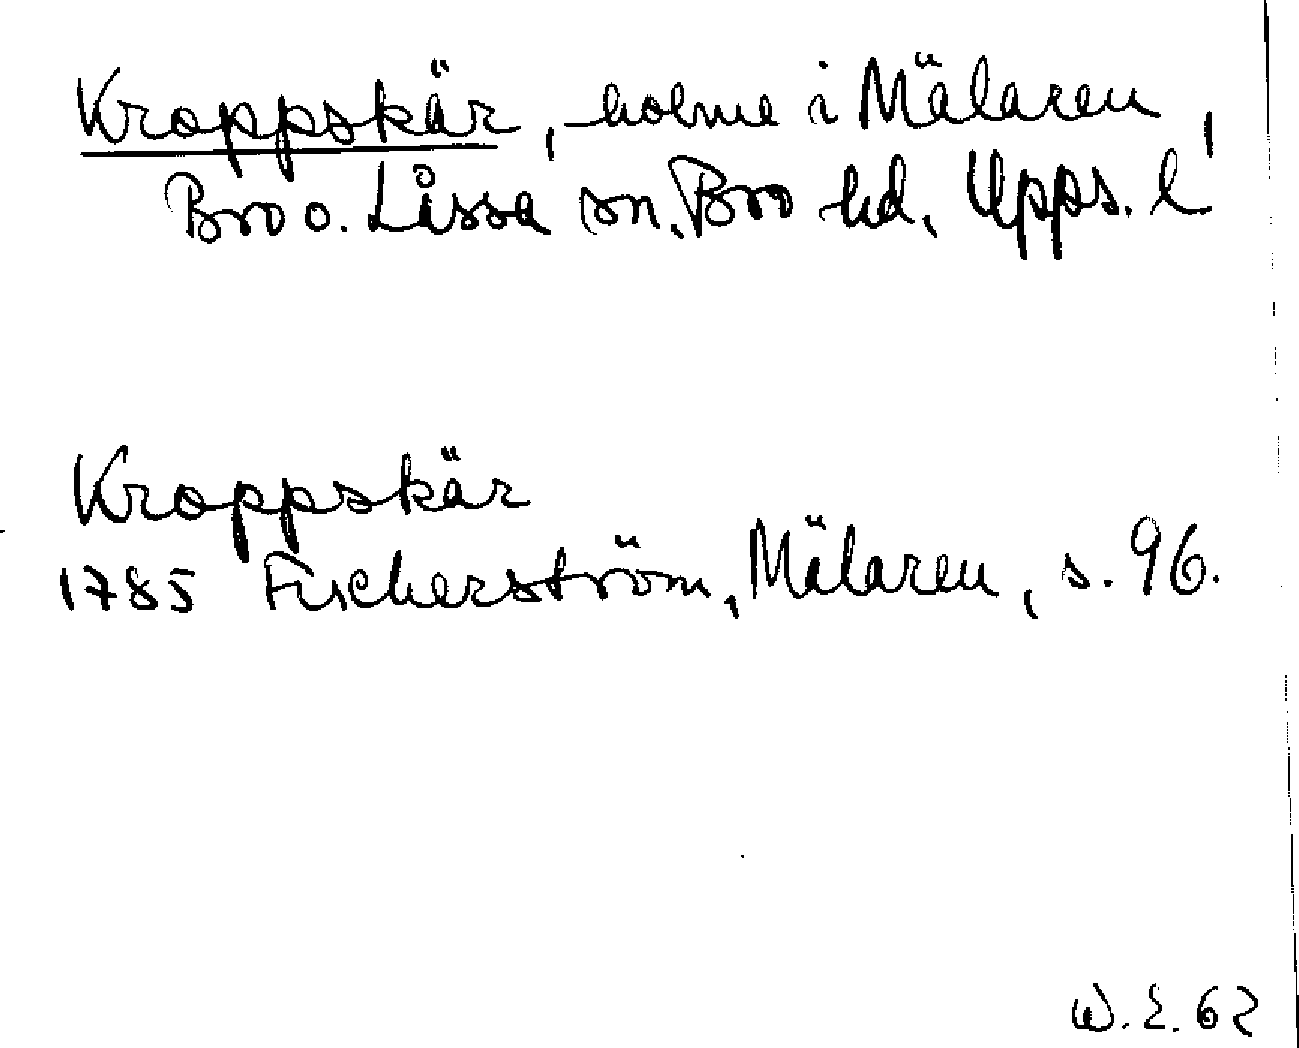 Kroppskär, holme i Mälaren,
Bro o. Låssa sn, Bro hd, Upps. l
Kroppskär
1785 Fischerström, Mälaren, s. 96.
W.E. 62